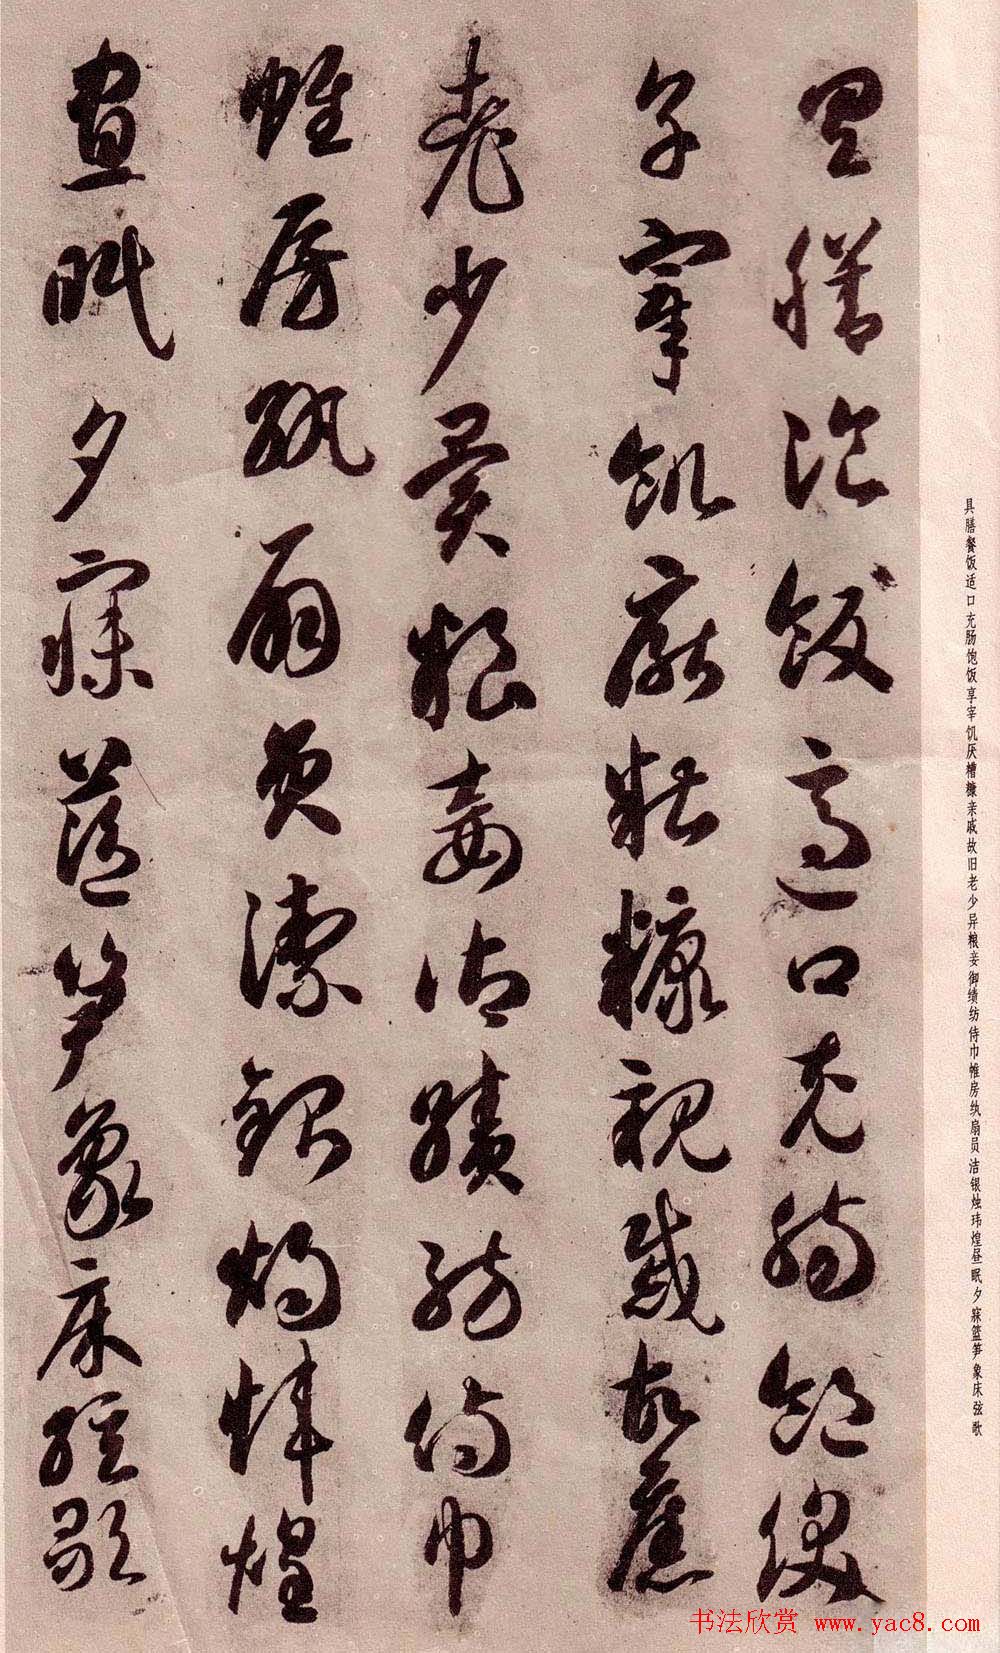 具膳飡飯適口充腸飽飫
亨宰飢厭糟糠親戚故舊
老少異糧妾御績紡侍巾
帷房紈扇員潔銀燭煒煌
晝眠夕寐藍笋象床絃歌
具膳餐饭适口充肠饱饭享宰饥厌槽糠亲戚故旧老少异粮妾御绩纺侍巾帷房纨扇员洁银烛玮煌昼眠夕寐篮笋象床弦歌
书法欣赏 www.yac8.com